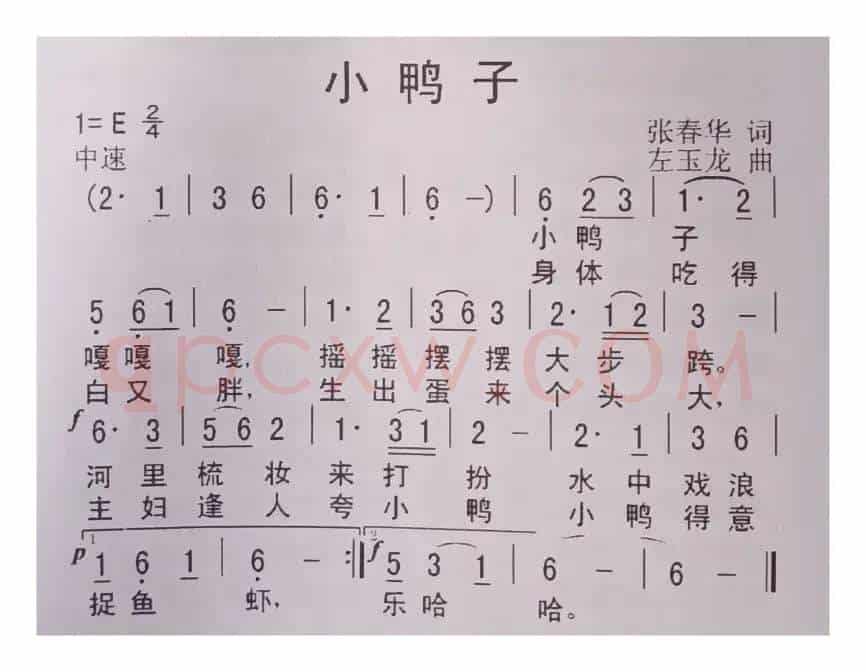 小鸭子
1=E 2/4
张春华 词
中速
左玉龙 曲
(2· 1 | 3 6 | 6· 1 | 6 -) | 6 2 3 | 1· 2 |
小 鸭 子
身 体 吃 得
5 6 1 | 6 - | 1· 2 | 3 6 3 | 2· 1 2 | 3 - |
嘎 嘎 嘎, 摇 摇 摆 摆 大 步 跨。
白 又 胖, 生 出 蛋 来 个 头 大,
qpcxw.COM
f 6· 3 | 5 6 2 | 1· 3 1 | 2 - | 2· 1 | 3 6 |
河 里 梳 妆 来 打 扮 水 中 戏 浪
主 妇 逢 人 夸 小 鸭 小 鸭 得 意
1 2
p 1 6 1 | 6 - :‖ f 5 3 1 | 6 - | 6 - ‖
捉 鱼 虾, 乐 哈 哈。